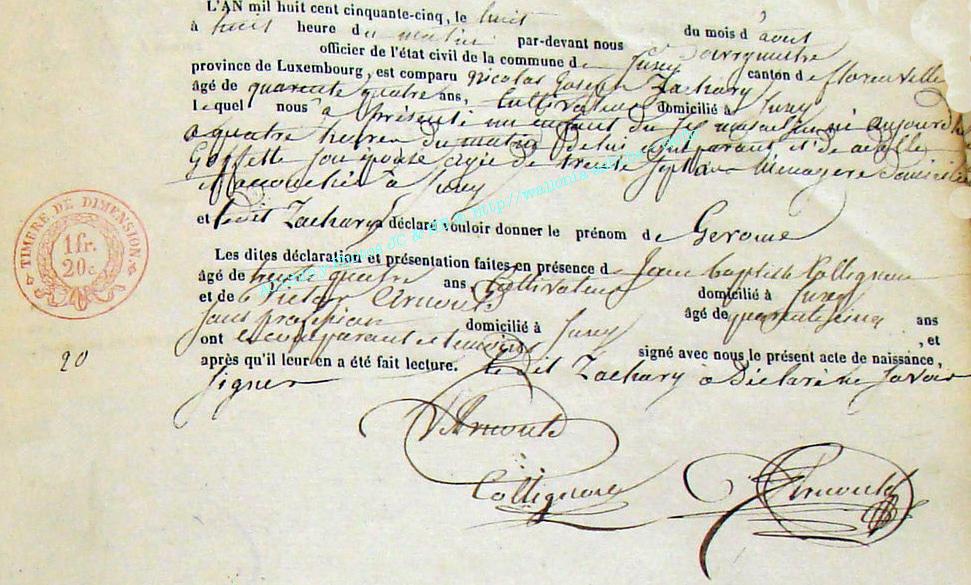 L'AN mil huit cent cinquante-cinq, le huit du mois d'août
à huit heure du matin par-devant nous
officier de l'état civil de la commune de Jusey canton de florenville
province de Luxembourg, est comparu Nicolas Joseph Zachary
âgé de quarente quatre ans, Cultivateur domicilié à Jusey
lequel nous a présenté un enfant du masculin né aujourd'h
a quatre heures du matin de lui comparant et de
Goffette son épouse agée de trente sept ans Ménagere
et accouchée à Jusey
et ledit Zachary a déclaré vouloir donner le prénom de Gerome
Les dites déclaration et présentation faites en présence de Jean baptiste Collignon
âgé de trente quatre ans, Cultivateur domicilié à Jusey
et de Victor Arnould âgé de quarante cinq ans
sans profession domicilié à Jusey , et
ont le comparant et temoins signé avec nous le présent acte de naissance,
après qu'il leur en a été fait lecture. le dit Zachary a déclaré ne savoir
signer
TIMBRE DE DIMENSION
1 fr.
20 c.
20
VArnould
Collignon
Arnould